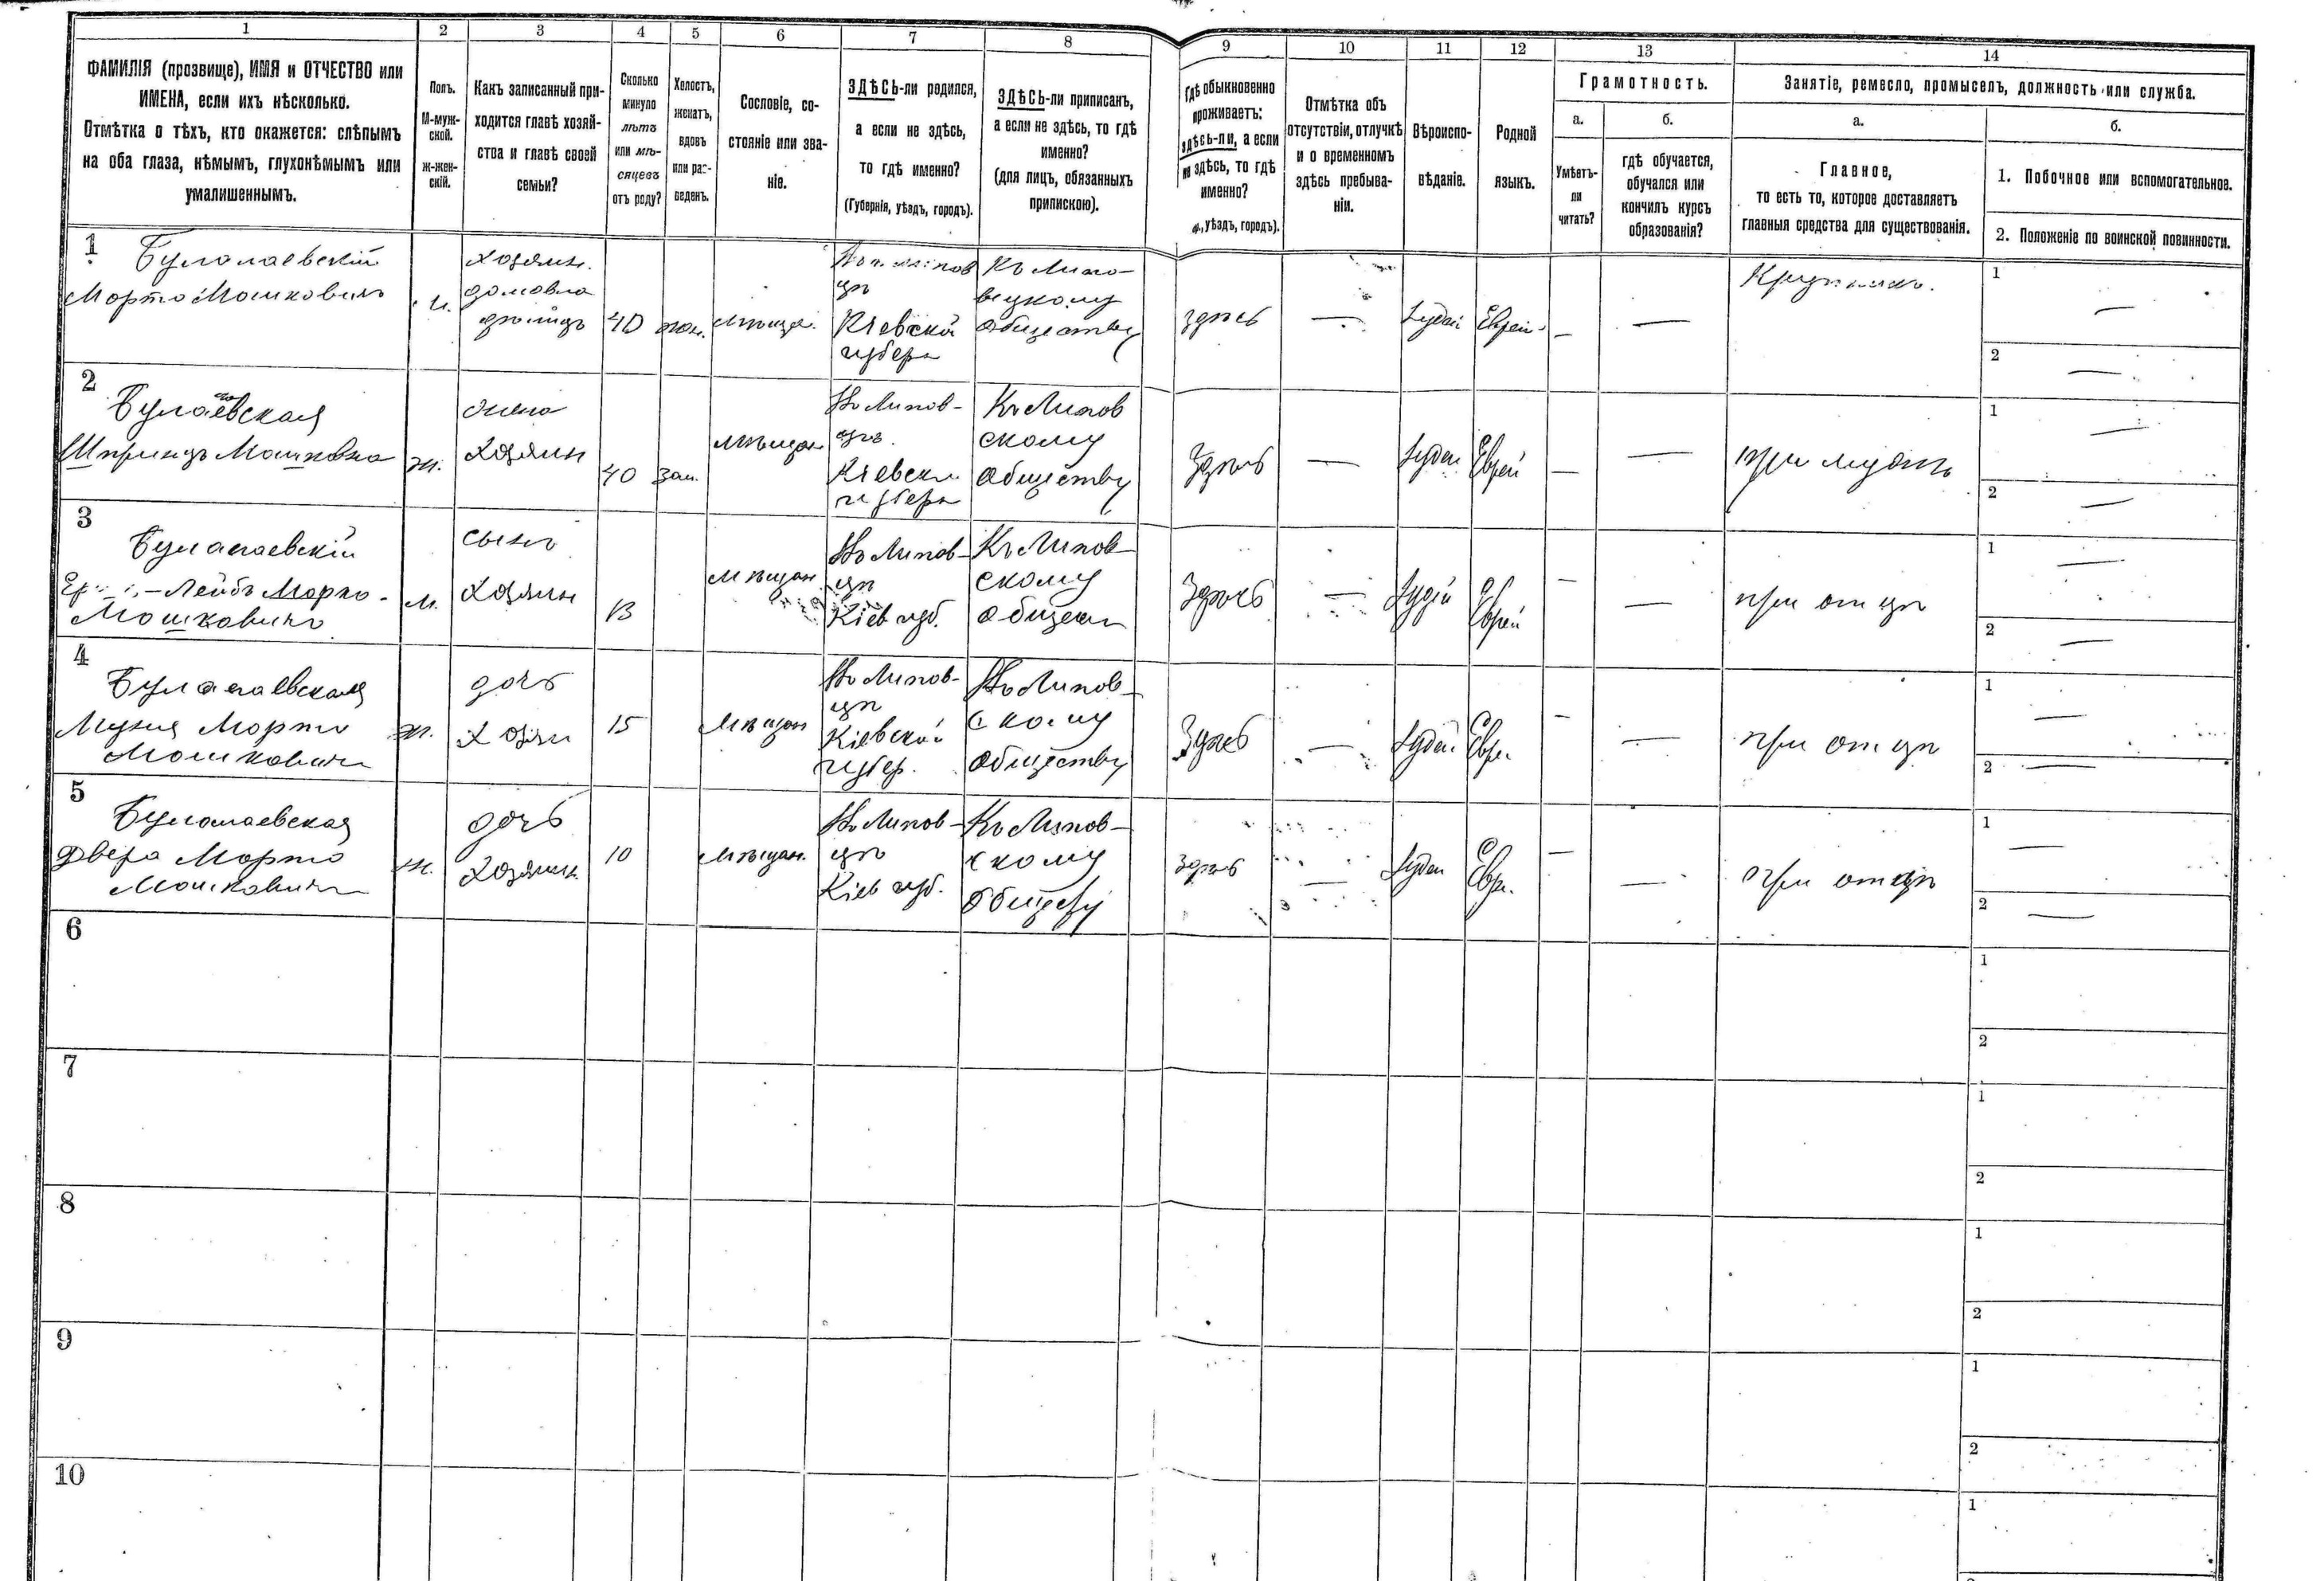 1 2 3 4 5 6 7 8 9 10 11 12 13 14
ФАМИЛІЯ (прозвище), ИМЯ и ОТЧЕСТВО или
ИМЕНА, если ихъ нѣсколько.
Отмѣтка о тѣхъ, кто окажется: слѣпымъ
на оба глаза, нѣмымъ, глухонѣмымъ или
умалишеннымъ.
Полъ.
М-муж-
ской.
ж-жен-
скій.
Какъ записанный при-
ходится главѣ хозяй-
ства и главѣ своей
семьи?
Сколько
минуло
лѣтъ
или мѣ-
сяцевъ
отъ роду?
Холостъ,
женатъ,
вдовъ
или раз-
веденъ.
Сословіе, со-
стояніе или зва-
ніе.
ЗДѢСЬ-ли родился,
а если не здѣсь,
то гдѣ именно?
(Губернія, уѣздъ, городъ).
ЗДѢСЬ-ли приписанъ,
а если не здѣсь, то гдѣ
именно?
(для лицъ, обязанныхъ
припискою).
Гдѣ обыкновенно
проживаетъ:
здѣсь-ли, а если
не здѣсь, то гдѣ
именно?
уѣздъ, городъ).
Отмѣтка объ
отсутствіи, отлучкѣ
и о временномъ
здѣсь пребыва-
ніи.
Вѣроиспо-
вѣданіе.
Родной
языкъ.
Грамотность.
а.
Умѣетъ-
ли
читать?
б.
гдѣ обучается,
обучался или
кончилъ курсъ
образованія?
Занятіе, ремесло, промыселъ, должность или служба.
а.
Главное,
то есть то, которое доставляетъ
главныя средства для существованія.
б.
1. Побочное или вспомогательное.
2. Положеніе по воинской повинности.
1
Мошковичъ
хозяин.
40
Кіевской
губерн
Къ Липо-
вецкому
обществу
здѣсь
—
Іудей
Еврей
—
—
1 —
2 —
2
Шпринцъ Мошковна
ж.
жена
хозяин
40
зам.
мѣщан
Въ Липов-
цѣ
Кіевск
губерн
Къ Липов
скому
обществу
здѣсь
—
Іудей
Еврей
—
—
при мужѣ
1 —
2 —
3
Лейбъ Морко
Мошковичъ
м.
сынъ
хозяин
13
мѣщан
Въ Липов-
цѣ
Кіев губ.
Къ Липов-
скому
общест
здѣсь
—
Іудей
Еврей
—
—
при отцѣ
1 —
2 —
4
Мошковичъ
ж.
дочь
хозяи
15
мѣщан
Въ Липов-
цѣ
Кіевской
губер.
скому
обществу
здѣсь
—
Іудей
Евр.
—
—
при отцѣ
1 —
2 —
5
Двера
Мошковичъ
ж.
дочь
хозяин.
10
мѣщан.
Въ Липов-
цѣ
Кіев губ.
Къ Липов-
скому
здѣсь
—
Іудей
Евр.
—
—
при отцѣ
1 —
2 —
6
1
2
7
1
2
8
1
2
9
1
2
10
1